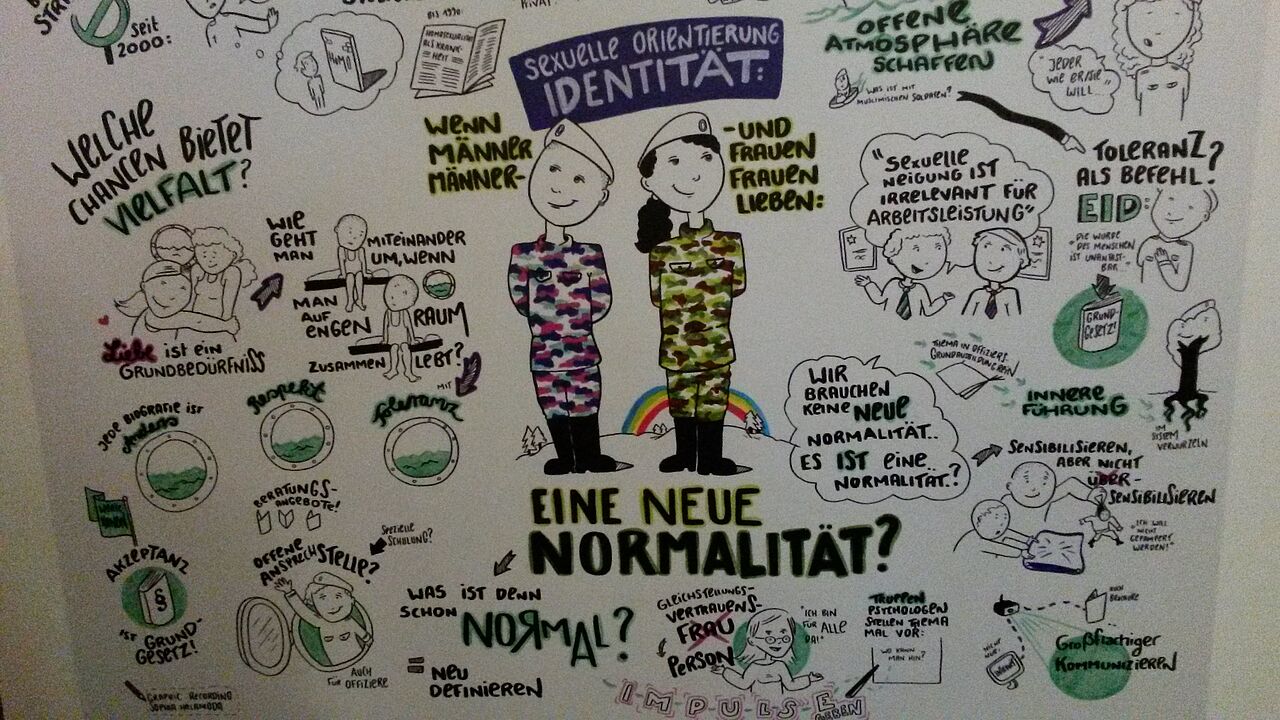 SEIT
2000:
HOMO
BIS 1990:
HOMOSEXUALITÄT
ALS KRANK-
HEIT
SEXUELLE ORIENTIERUNG
IDENTITÄT:
OFFENE
ATMOSPHÄRE
SCHAFFEN
WAS IST MIT
MUSLIMISCHEN SOLDATEN?
"JEDER
WIE ER/SIE
WILL"
WELCHE
CHANCEN BIETET
VIELFALT?
WENN
MÄNNER
MÄNNER-
-UND
FRAUEN
FRAUEN
LIEBEN:
"SEXUELLE
NEIGUNG IST
IRRELEVANT FÜR
ARBEITSLEISTUNG"
TOLERANZ?
ALS BEFEHL?
EID:
"DIE WÜRDE
DES MENSCHEN
IST UNANTAST-
BAR"
GRUND-
GESETZ!
Liebe IST EIN
GRUNDBEDÜRFNISS
WIE
GEHT
MAN
MITEINANDER
UM, WENN
MAN
AUF
ENGEN
RAUM
ZUSAMMEN
LEBT?
MIT
THEMA IN OFFIZIERS-
GRUNDAUSBILDUNG REIN
INNERE
FÜHRUNG
IM
SYSTEM
VERWURZELN
JEDE BIOGRAFIE IST
anders
Respekt
Toleranz
WIR
BRAUCHEN
KEINE NEUE
NORMALITÄT..
ES IST EINE
NORMALITÄT.?
SENSIBILISIEREN,
ABER NICHT
ÜBER-
SENSIBILISIEREN
"ICH WILL
NICHT
GEPAMPERT
WERDEN!"
BERATUNGS-
ANGEBOTE!
EINE NEUE
NORMALITÄT?
AKZEPTANZ
§
IST GRUND-
GESETZ!
OFFENE
ANSPRECHSTELLE?
SPEZIELLE
SCHULUNG?
AUCH
FÜR OFFIZIERE
WAS IST DENN
SCHON
NORMAL?
= NEU
DEFINIEREN
GLEICHSTELLUNGS-
VERTRAUENS-
FRAU
PERSON
"ICH BIN
FÜR ALLE
DA!"
TRUPPEN
PSYCHOLOGEN
STELLEN THEMA
MAL VOR:
WO KANN
MAN HIN?
AUCH
BROSCHÜRE
NICHT
NUR:
INTERNET
Großflächiger
KOMMUNIZIEREN
IMPULSE
GEBEN
GRAPHIC RECORDING